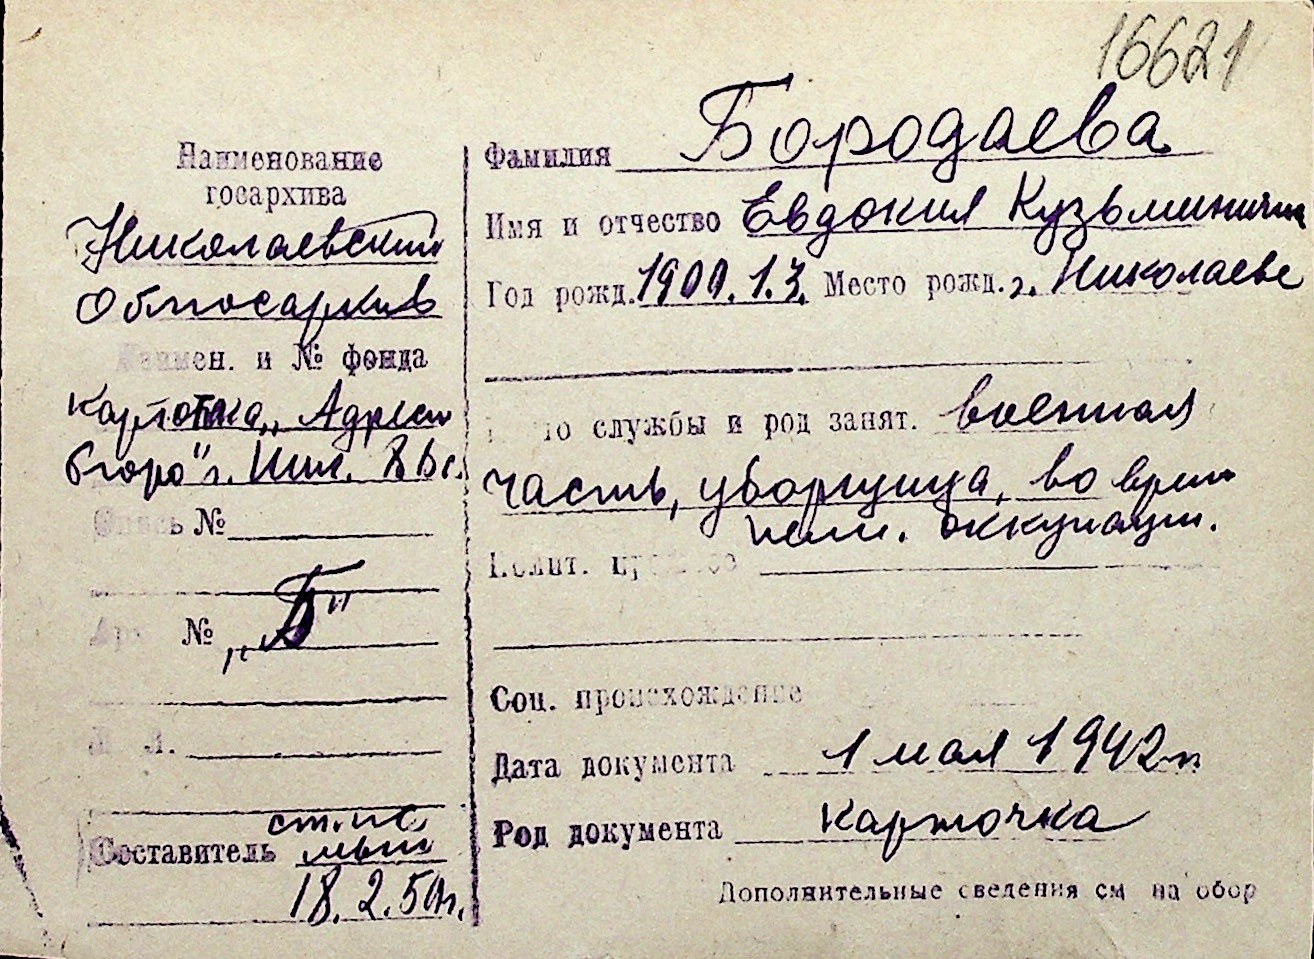 16621
Наименование
госархива
Николаевский
Облгосархив
Наимен. и № фонда
картотека „Адресн
бюро" г. Ник.
Опись №
Арх №
„Б"
Л. Л.
Составитель
18. 2. 50г.
Фамилия Бородаева
Имя и отчество Евдокия Кузьминична
Год рожд. 1900. 1.3. Место рожд. г. Николаеве
то службы и род занят. военная
часть, уборщица, во врем
нем. оккупации.
Полит. прошлое
Соц. происхождение
Дата документа 1 мая 1942г
Род документа карточка
Дополнительные сведения см на обор